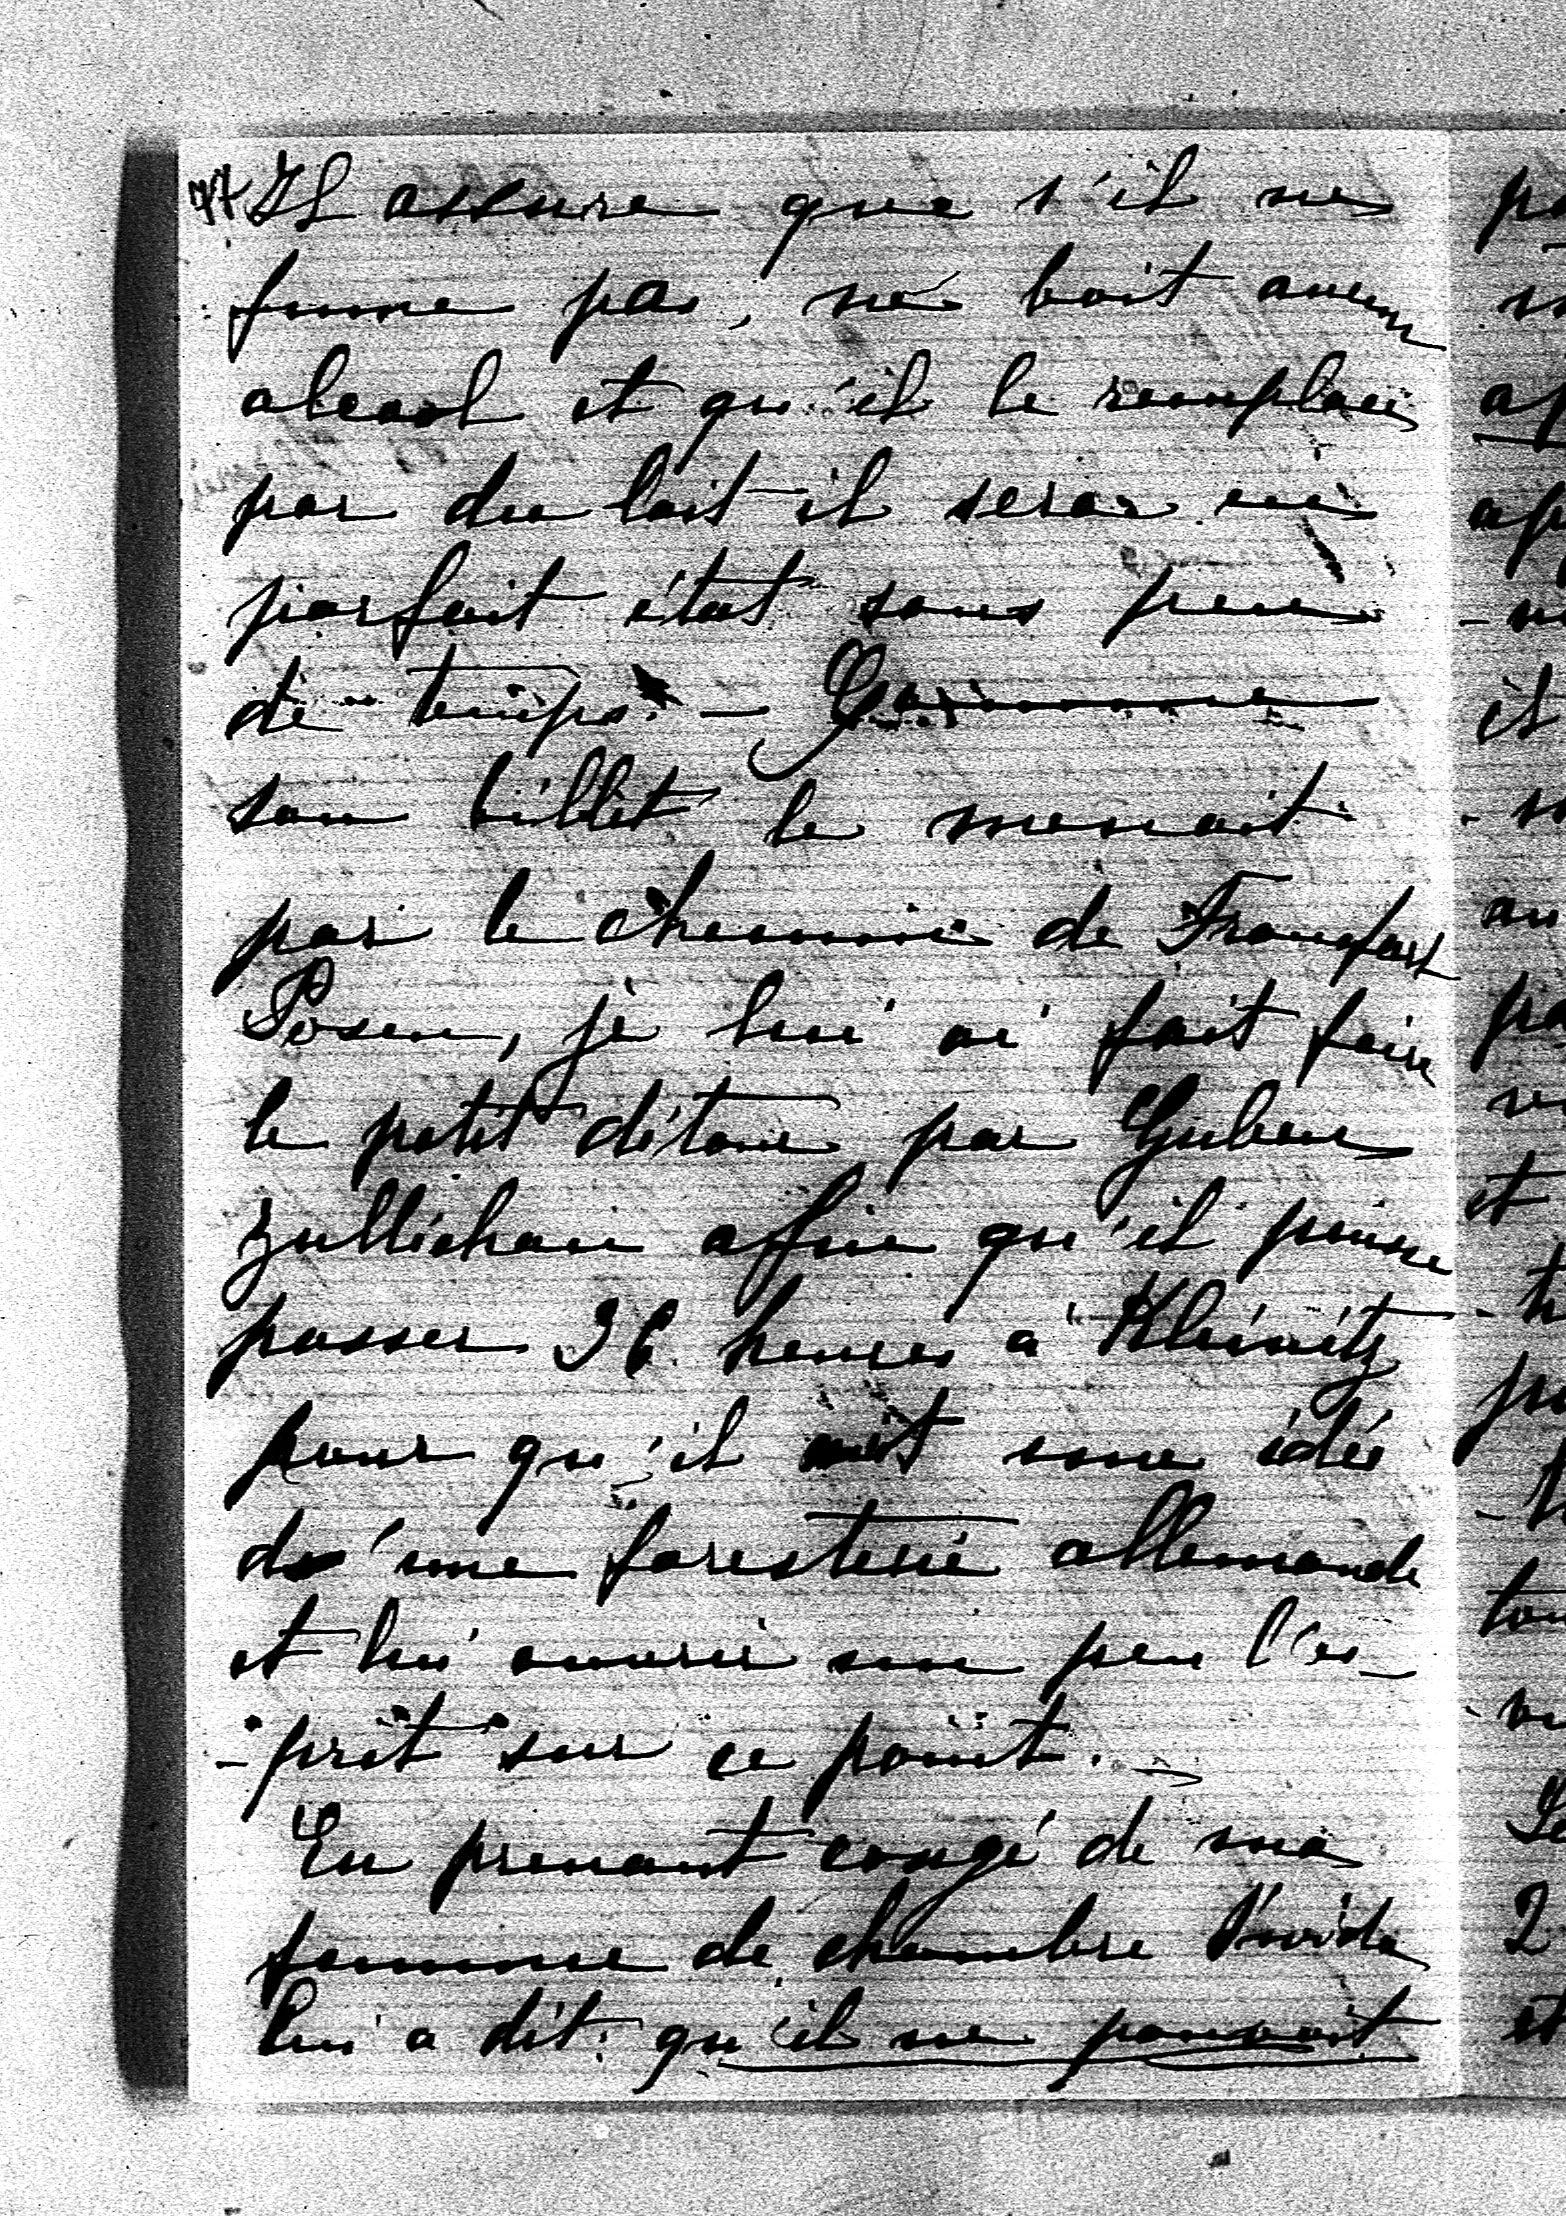 77 Il assure que s'il ne
fume pas, ne boit aucun
alcool et qu'il le remplace
par du lait il sera en
parfait état sous peu
de temps. — Comme
son billet le menait
par le chemin de Francfort
Posen, je lui ai fait faire
le petit détour par Guben
Zullichau afin qu'il puisse
passer 36 heures à Kleinitz
pour qu'il eut une idée
d'une foresterie allemande
et lui ouvrir un peu l'es-
-prit sur ce point. —
En prenant congé de ma
femme de chambre
lui a dit qu'il ne pouvait